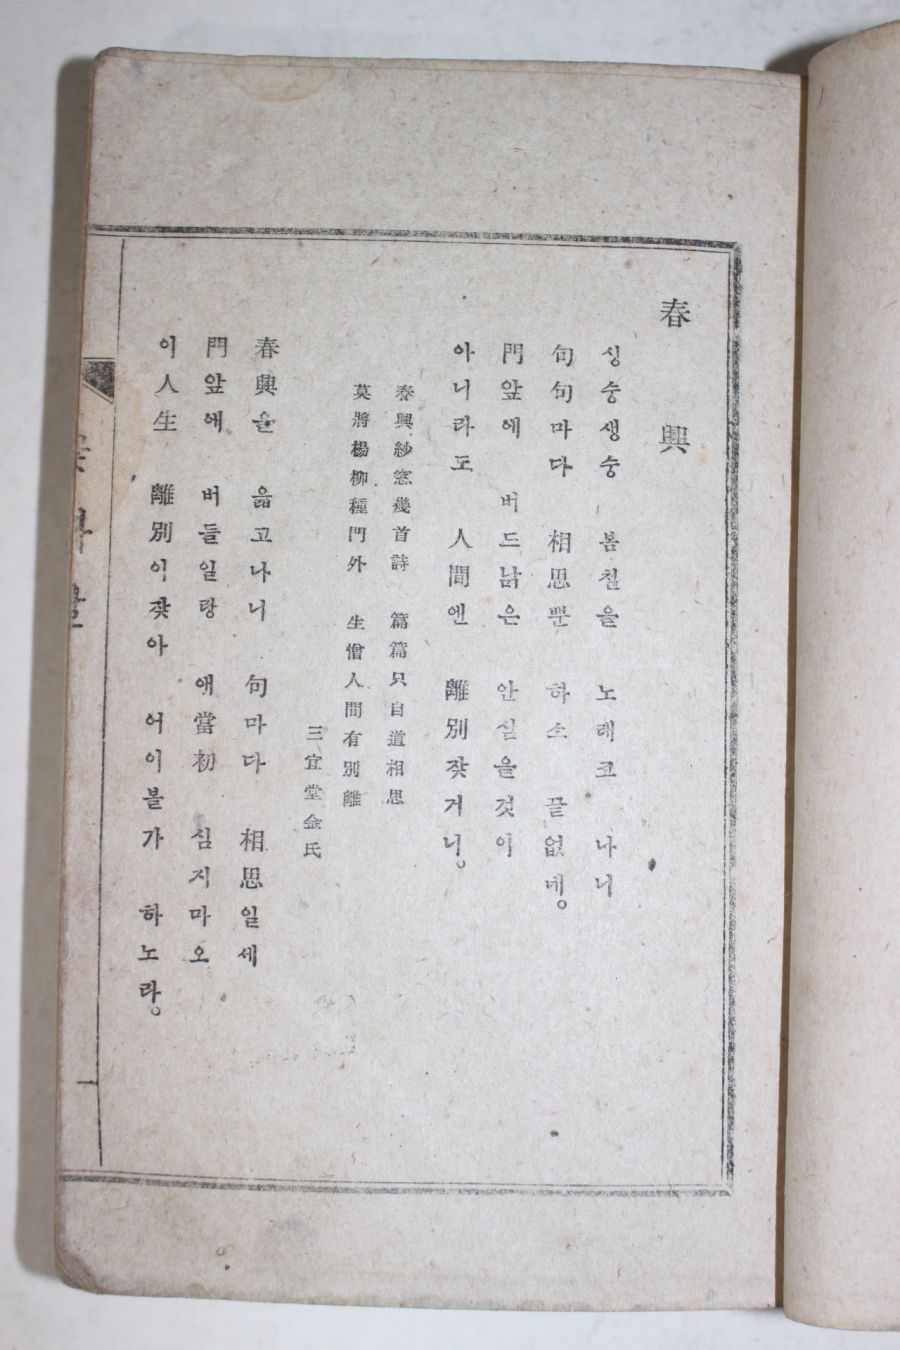 春興
싱숭생숭 봄철을 노래코 나니
句句마다 相思뿐 하소 끝없네。
門앞에 버드낡은 안심을것이
아니라도 人間엔 離別잦거니。
春興紗窓幾首詩 篇篇只自道相思
莫將楊柳種門外 生憎人間有別離
三宜堂金氏
春興을 읇고나니 句마다 相思일세
門앞에 버들일랑 애當初 심지마오
이人生 離別이잦아 어이볼가 하노라。